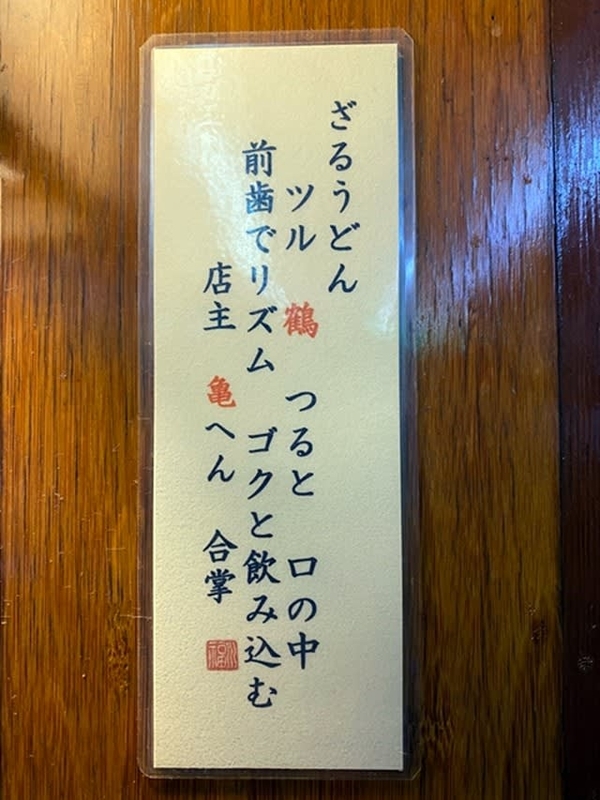 ざるうどん
ツル 鶴 つると 口の中
前歯でリズム ゴクと飲み込む
店主 亀へん 合掌